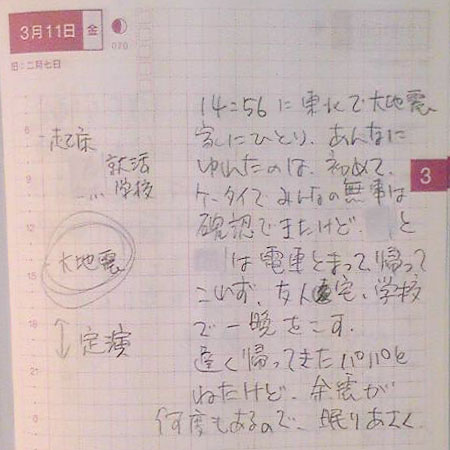 3月11日 金
070
旧:二月七日
3
起床
就活
学校
大地震
定演
14:56に東北で大地震
家にひとり、あんなに
ゆれたのは、初めて、
ケータイでみんなの無事は
確認できたけど、 と
は電車とまって、帰って
こいず、友人宅、学校
で一晩をこす。
遅く帰ってきたパパと
ねたけど、余震が
何度もあるので、眠りあさく、